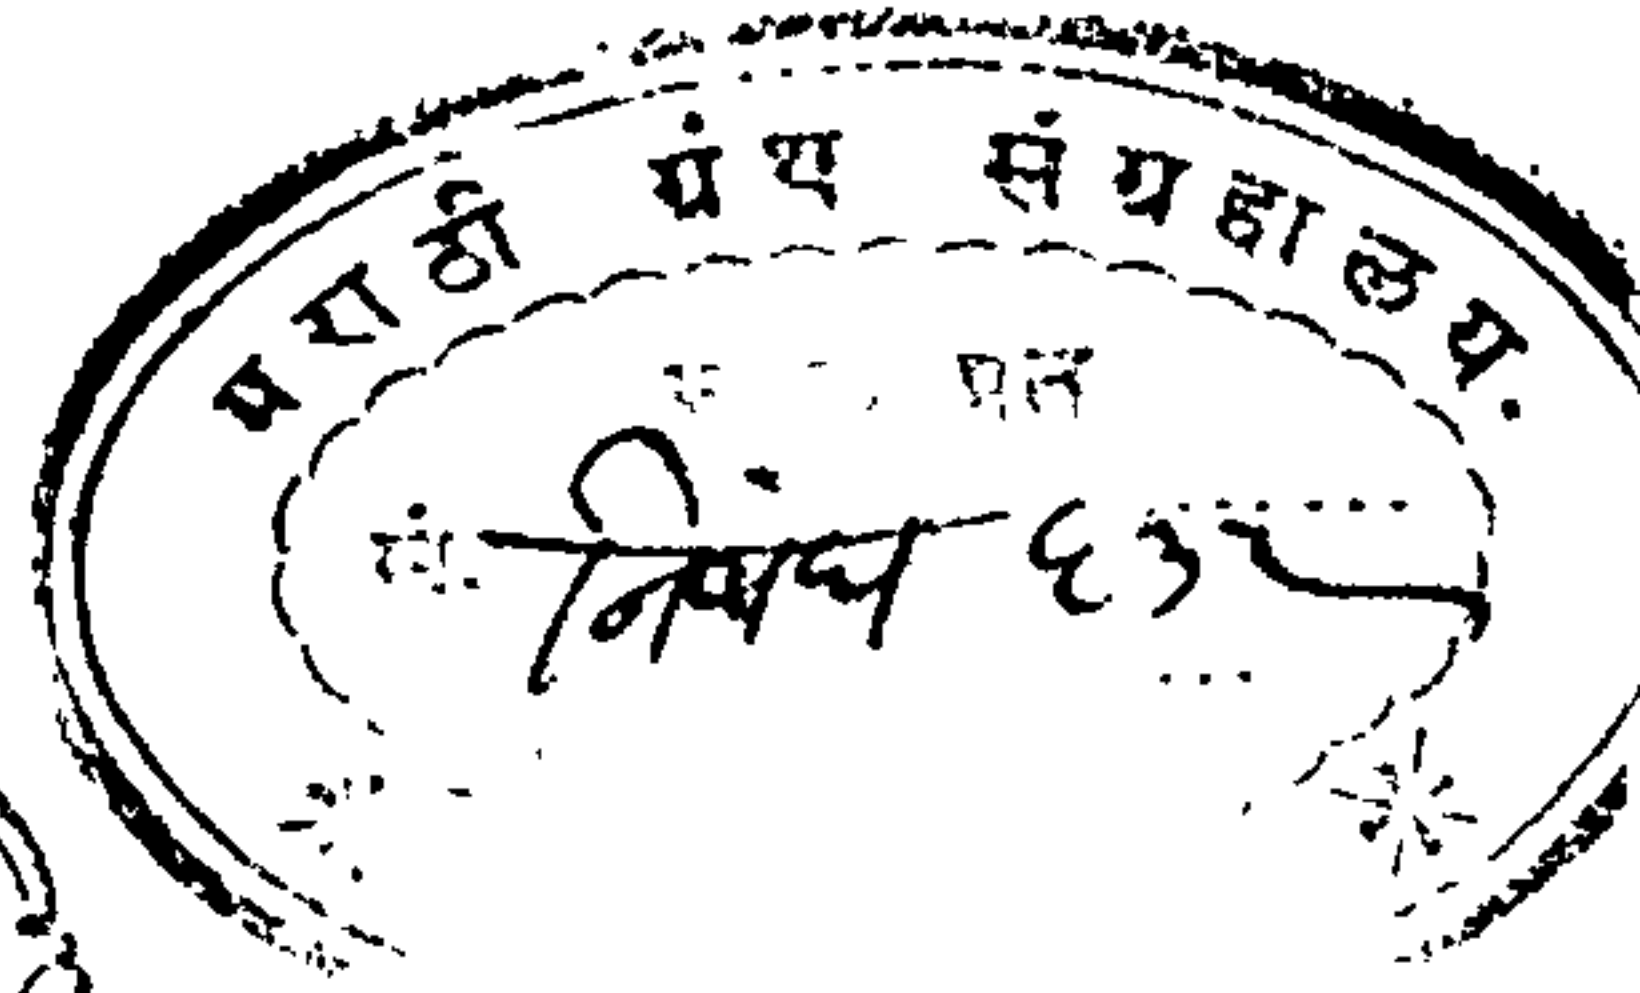 मराठी ग्रंथ संग्रहालय.
निबंध ६३२